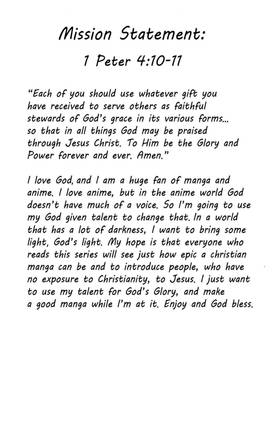 Mission Statement:
1 Peter 4:10-11
"Each of you should use whatever gift you
have received to serve others as faithful
stewards of God's grace in its various forms...
so that in all things God may be praised
through Jesus Christ. To Him be the Glory and
Power forever and ever. Amen."
I love God, and I am a huge fan of manga and
anime. I love anime, but in the anime world God
doesn't have much of a voice. So I'm going to use
my God given talent to change that. In a world
that has a lot of darkness, I want to bring some
light, God's light. My hope is that everyone who
reads this series will see just how epic a christian
manga can be and to introduce people, who have
no exposure to Christianity, to Jesus. I just want
to use my talent for God's Glory, and make
a good manga while I'm at it. Enjoy and God bless.